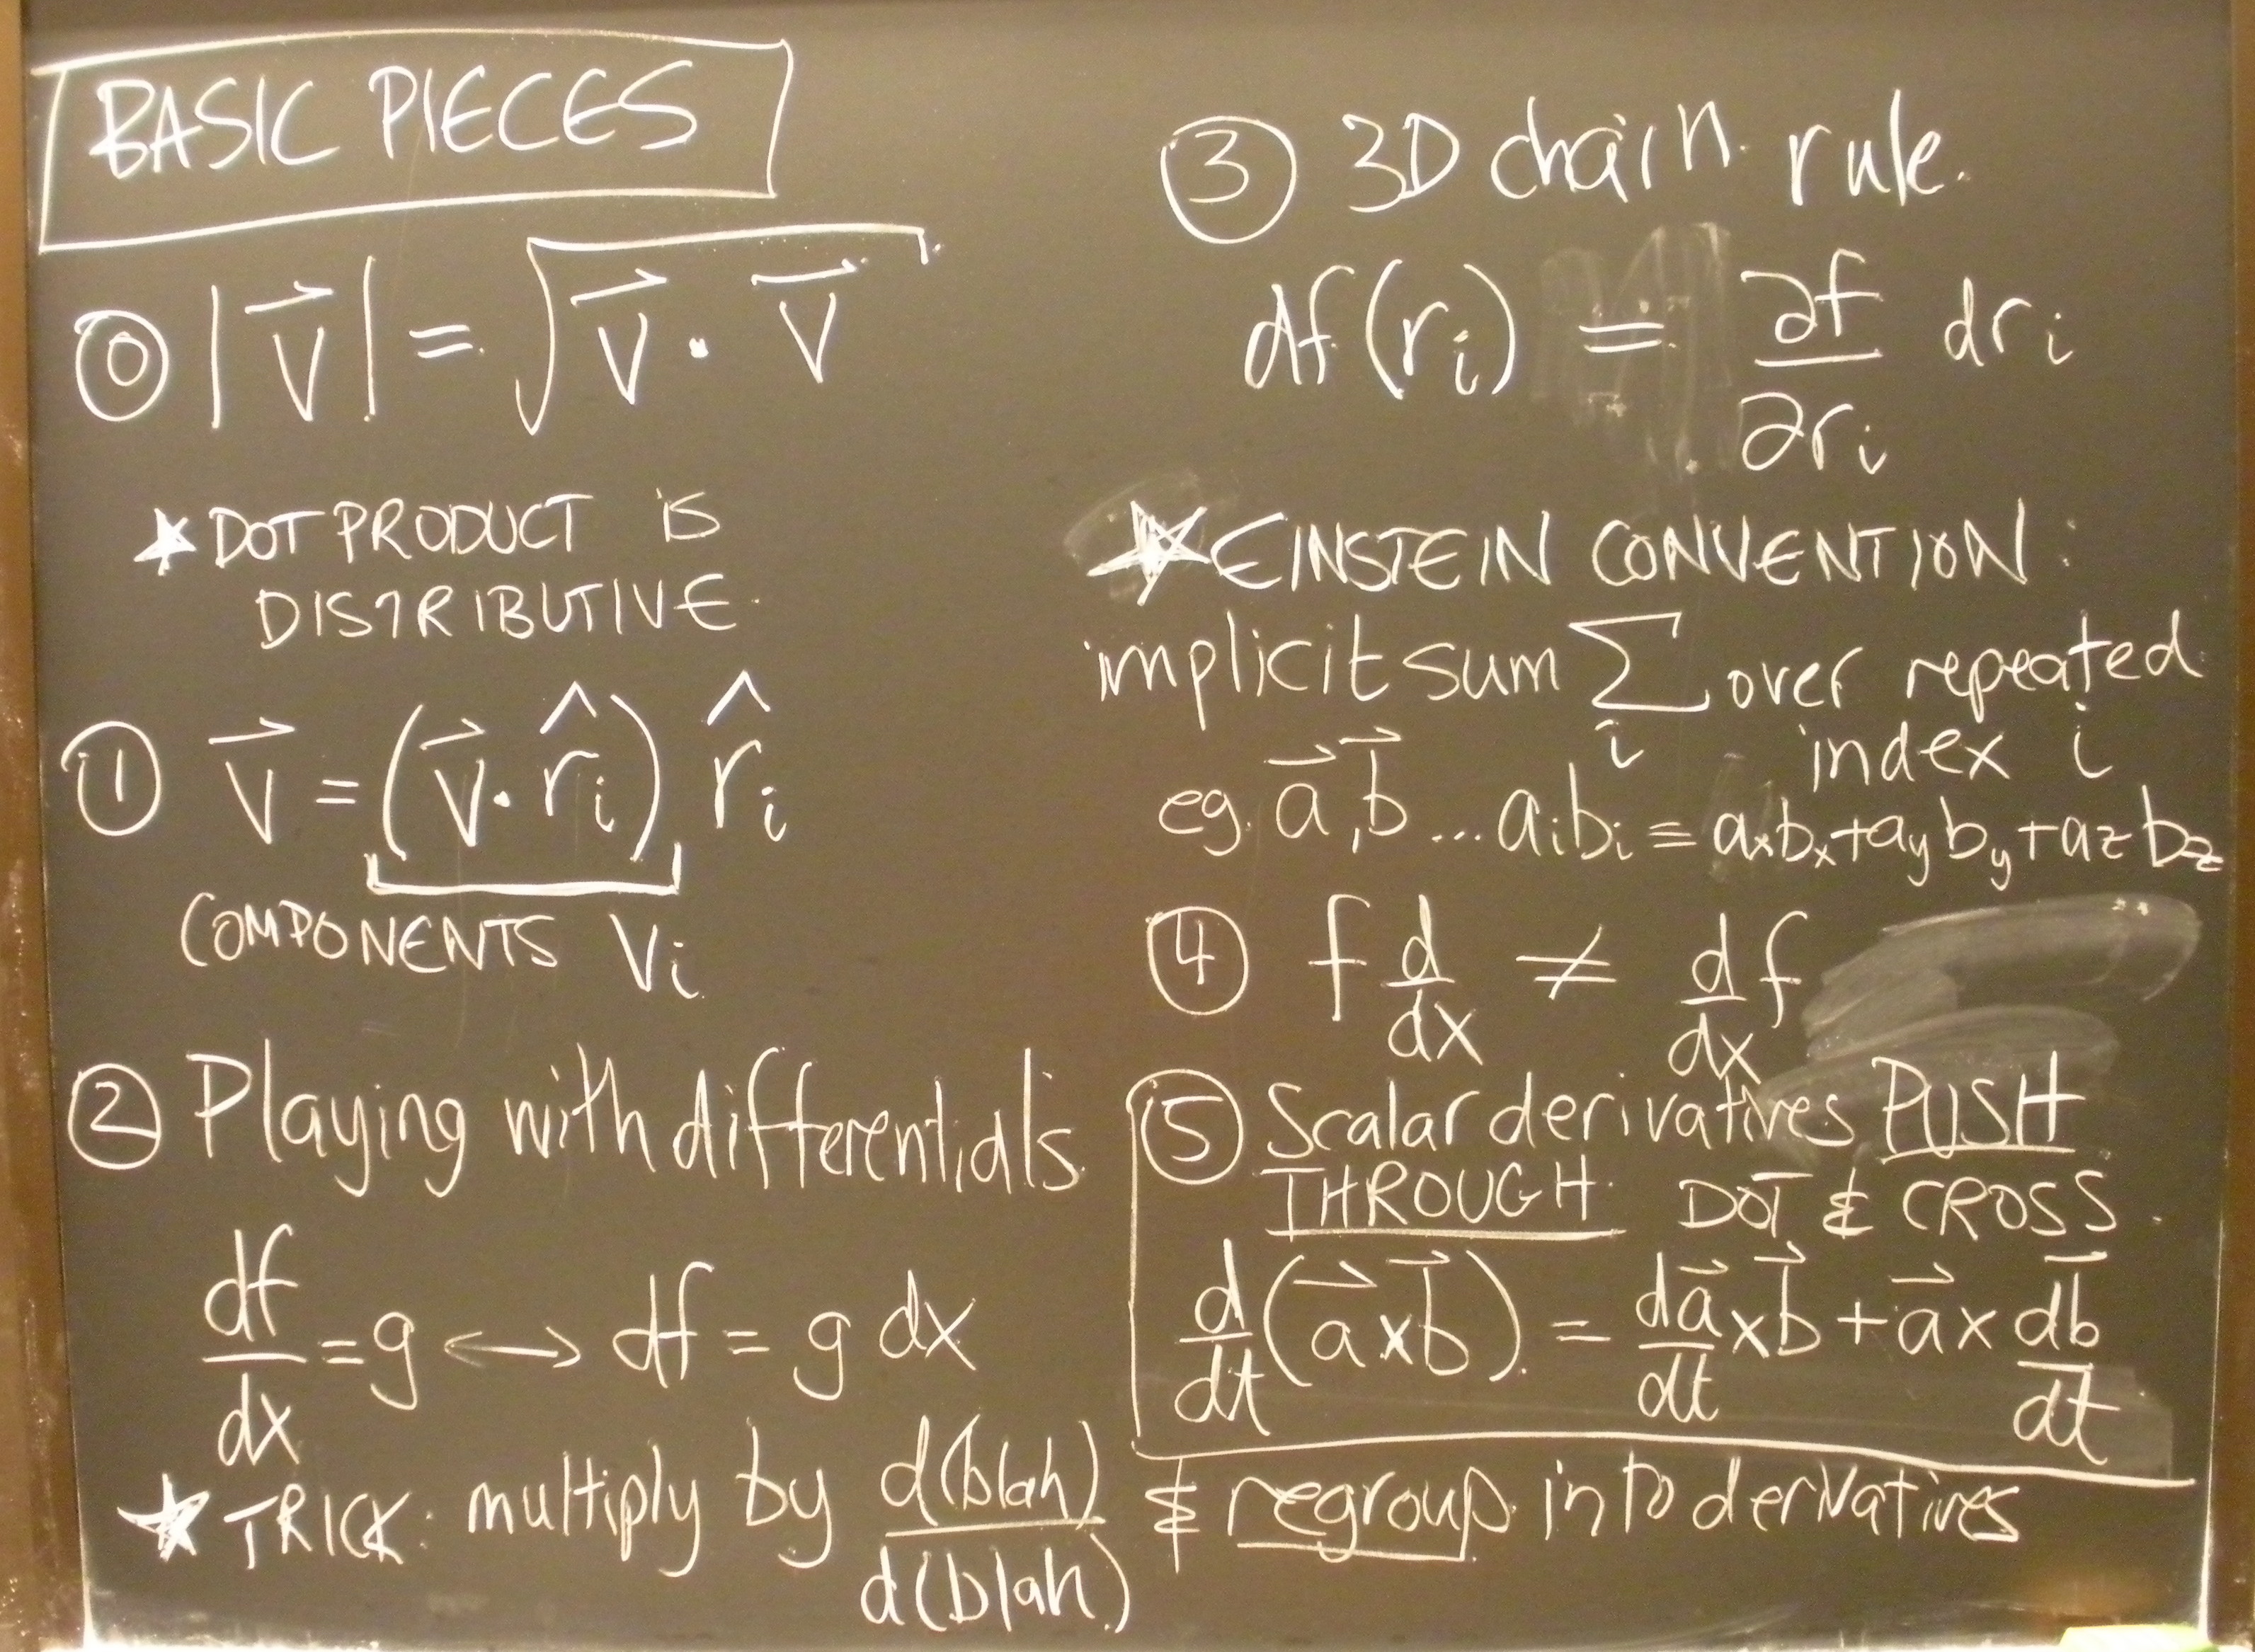 BASIC PIECES
⓪ |v⃗| = √(v⃗ · v⃗)
★ DOT PRODUCT is
DISTRIBUTIVE.
① v⃗ = (v⃗ · r̂ᵢ) r̂ᵢ
COMPONENTS vᵢ
② Playing with differentials
df/dx = g ⟷ df = g dx
★ TRICK: multiply by d(blah)/d(blah) & regroup into derivatives
③ 3D chain rule.
df(rᵢ) = ∂f/∂rᵢ drᵢ
★ EINSTEIN CONVENTION:
implicit sum Σᵢ over repeated
index i
eg. a⃗, b⃗ ... aᵢbᵢ ≡ aₓbₓ + a_y b_y + a_z b_z
④ f d/dx ≠ d/dx f
⑤ Scalar derivatives PUSH
THROUGH DOT & CROSS.
d/dt (a⃗ × b⃗) = da⃗/dt × b⃗ + a⃗ × db⃗/dt